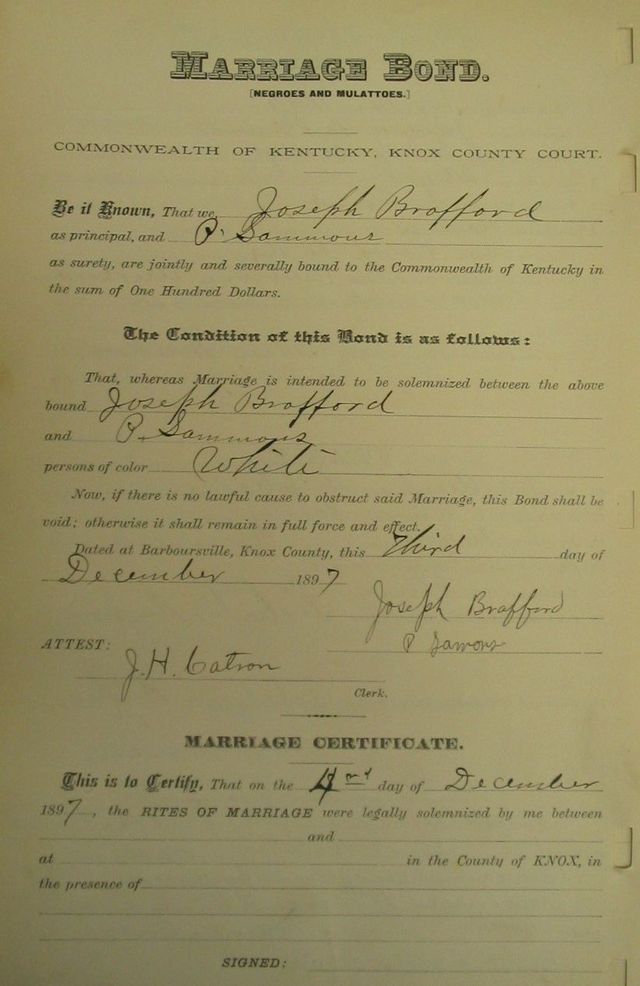 MARRIAGE BOND.
[NEGROES AND MULATTOES.]
COMMONWEALTH OF KENTUCKY, KNOX COUNTY COURT.
Be it Known, That we Joseph Brafford
as principal, and P. Sammons
as surety, are jointly and severally bound to the Commonwealth of Kentucky in
the sum of One Hundred Dollars.
The Condition of this Bond is as follows:
That, whereas Marriage is intended to be solemnized between the above
bound Joseph Brafford
and P. Sammons
persons of color White
Now, if there is no lawful cause to obstruct said Marriage, this Bond shall be
void; otherwise it shall remain in full force and effect.
Dated at Barboursville, Knox County, this Third day of
December 1897
Joseph Brafford
P
ATTEST:
J. H. Catron
Clerk.
MARRIAGE CERTIFICATE.
This is to Certify, That on the 4 day of December
1897, the RITES OF MARRIAGE were legally solemnized by me between
and
at in the County of KNOX, in
the presence of
SIGNED: